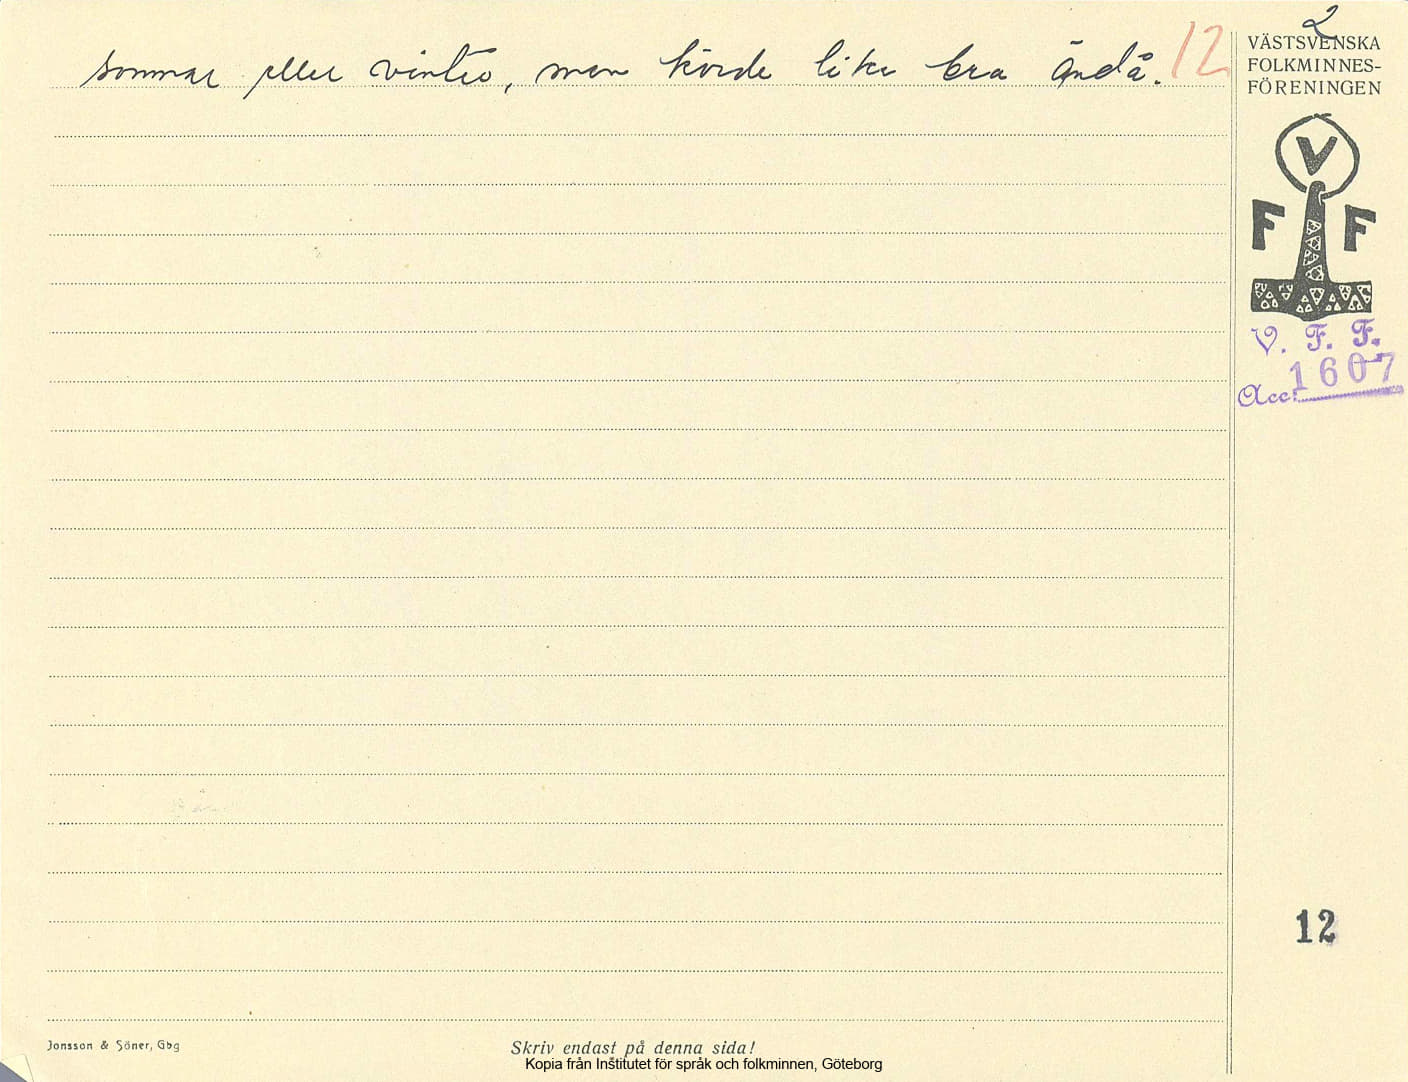 sommar eller vinter, man körde lika bra ändå.
12
2
VÄSTSVENSKA
FOLKMINNES-
FÖRENINGEN
V
F F
V. F. F.
Acc: 1607
12
Jonsson & Söner, Gbg
Skriv endast på denna sida!
Kopia från Institutet för språk och folkminnen, Göteborg